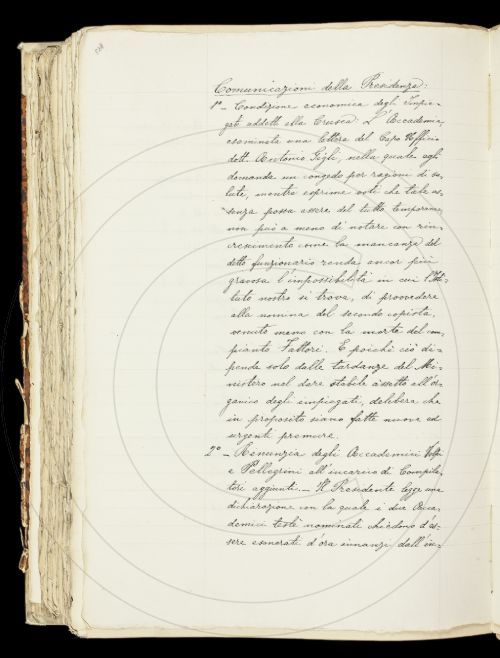 Comunicazioni della Presidenza:
1º – Condizione economica degli Impie-
gati addetti alla Crusca: L'Accademia,
esaminata una lettera del Capo Uffizio
dott. Antonio Gigli, nella quale egli
domanda un congedo per ragioni di sa-
lute, mentre esprime voti che tale as-
senza possa essere del tutto temporanea,
non può a meno di notare con rin-
crescimento come la mancanza del
detto funzionario renda ancor più
gravosa l'impossibilità in cui l'Isti-
tuto nostro si trova, di provvedere
alla nomina del secondo copista,
venuto meno con la morte del com-
pianto Fattori. E poichè ciò di-
pende solo dalle tardanze del Mi-
nistero nel dare stabile assetto all'or-
ganico degli impiegati, delibera che
in proposito siano fatte nuove ed
urgenti premure.
2º – Renunzia degli Accademici Volpi
e Pellegrini all'incarico di Compila-
tori aggiunti. – Il Presidente legge una
dichiarazione con la quale i due Acca-
demici testè nominati chiedono d'es-
sere esonerati d'ora innanzi dall'in-